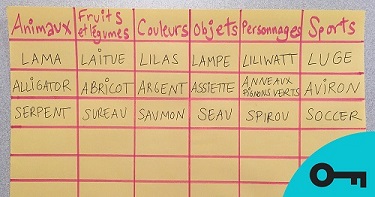 Animaux Fruits et légumes Couleurs Objets Personnages Sports
LAMA LAITUE LILAS LAMPE LILIWATT LUGE
ALLIGATOR ABRICOT ARGENT ASSIETTE ANNEAUX PIGNONS VERTS AVIRON
SERPENT SUREAU SAUMON SEAU SPIROU SOCCER